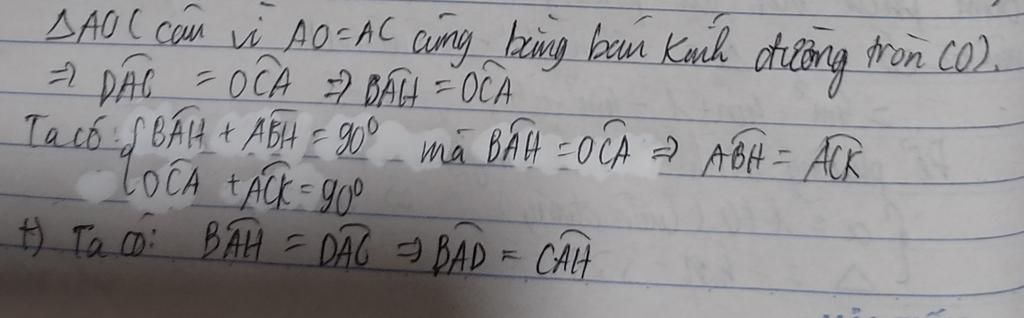 ΔAOC cân vì AO=AC cùng bằng bán kính đường tròn (O).
⇒ \widehat{DAC} = \widehat{OCA} ⇒ \widehat{BAH} = \widehat{OCA}
Ta có: { \widehat{BAH} + \widehat{ABH} = 90° mà \widehat{BAH} = \widehat{OCA} ⇒ \widehat{ABH} = \widehat{ACK}
\widehat{OCA} + \widehat{ACK} = 90°
+) Ta có: \widehat{BAH} = \widehat{DAC} ⇒ \widehat{BAD} = \widehat{CAH}